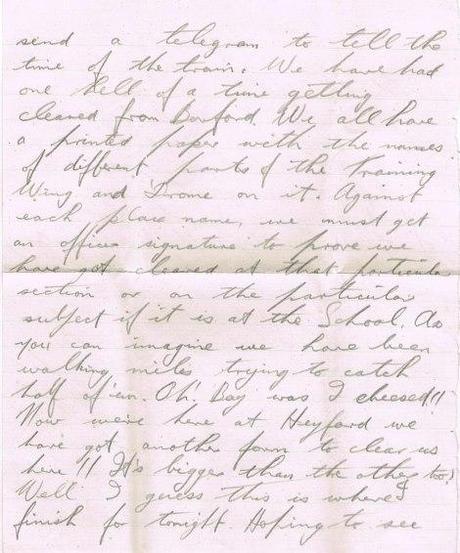 send a telegram to tell the
time of the train. We have had
one Hell of a time getting
cleared from Boxford. We all have
a printed paper with the names
of different parts of the Training
Wing and Drome on it. Against
each place name, we must get
an officers signature to prove we
have got cleared at that particular
section or on the particular
subject if it is at the School. As
you can imagine we have been
walking miles trying to catch
half of 'em. Oh! Boy was I cheesed!!
Now we're here at Heyford we
have got another form to clear us
here!! It's bigger than the other too!
Well I guess this is where I
finish for tonight. Hoping to see